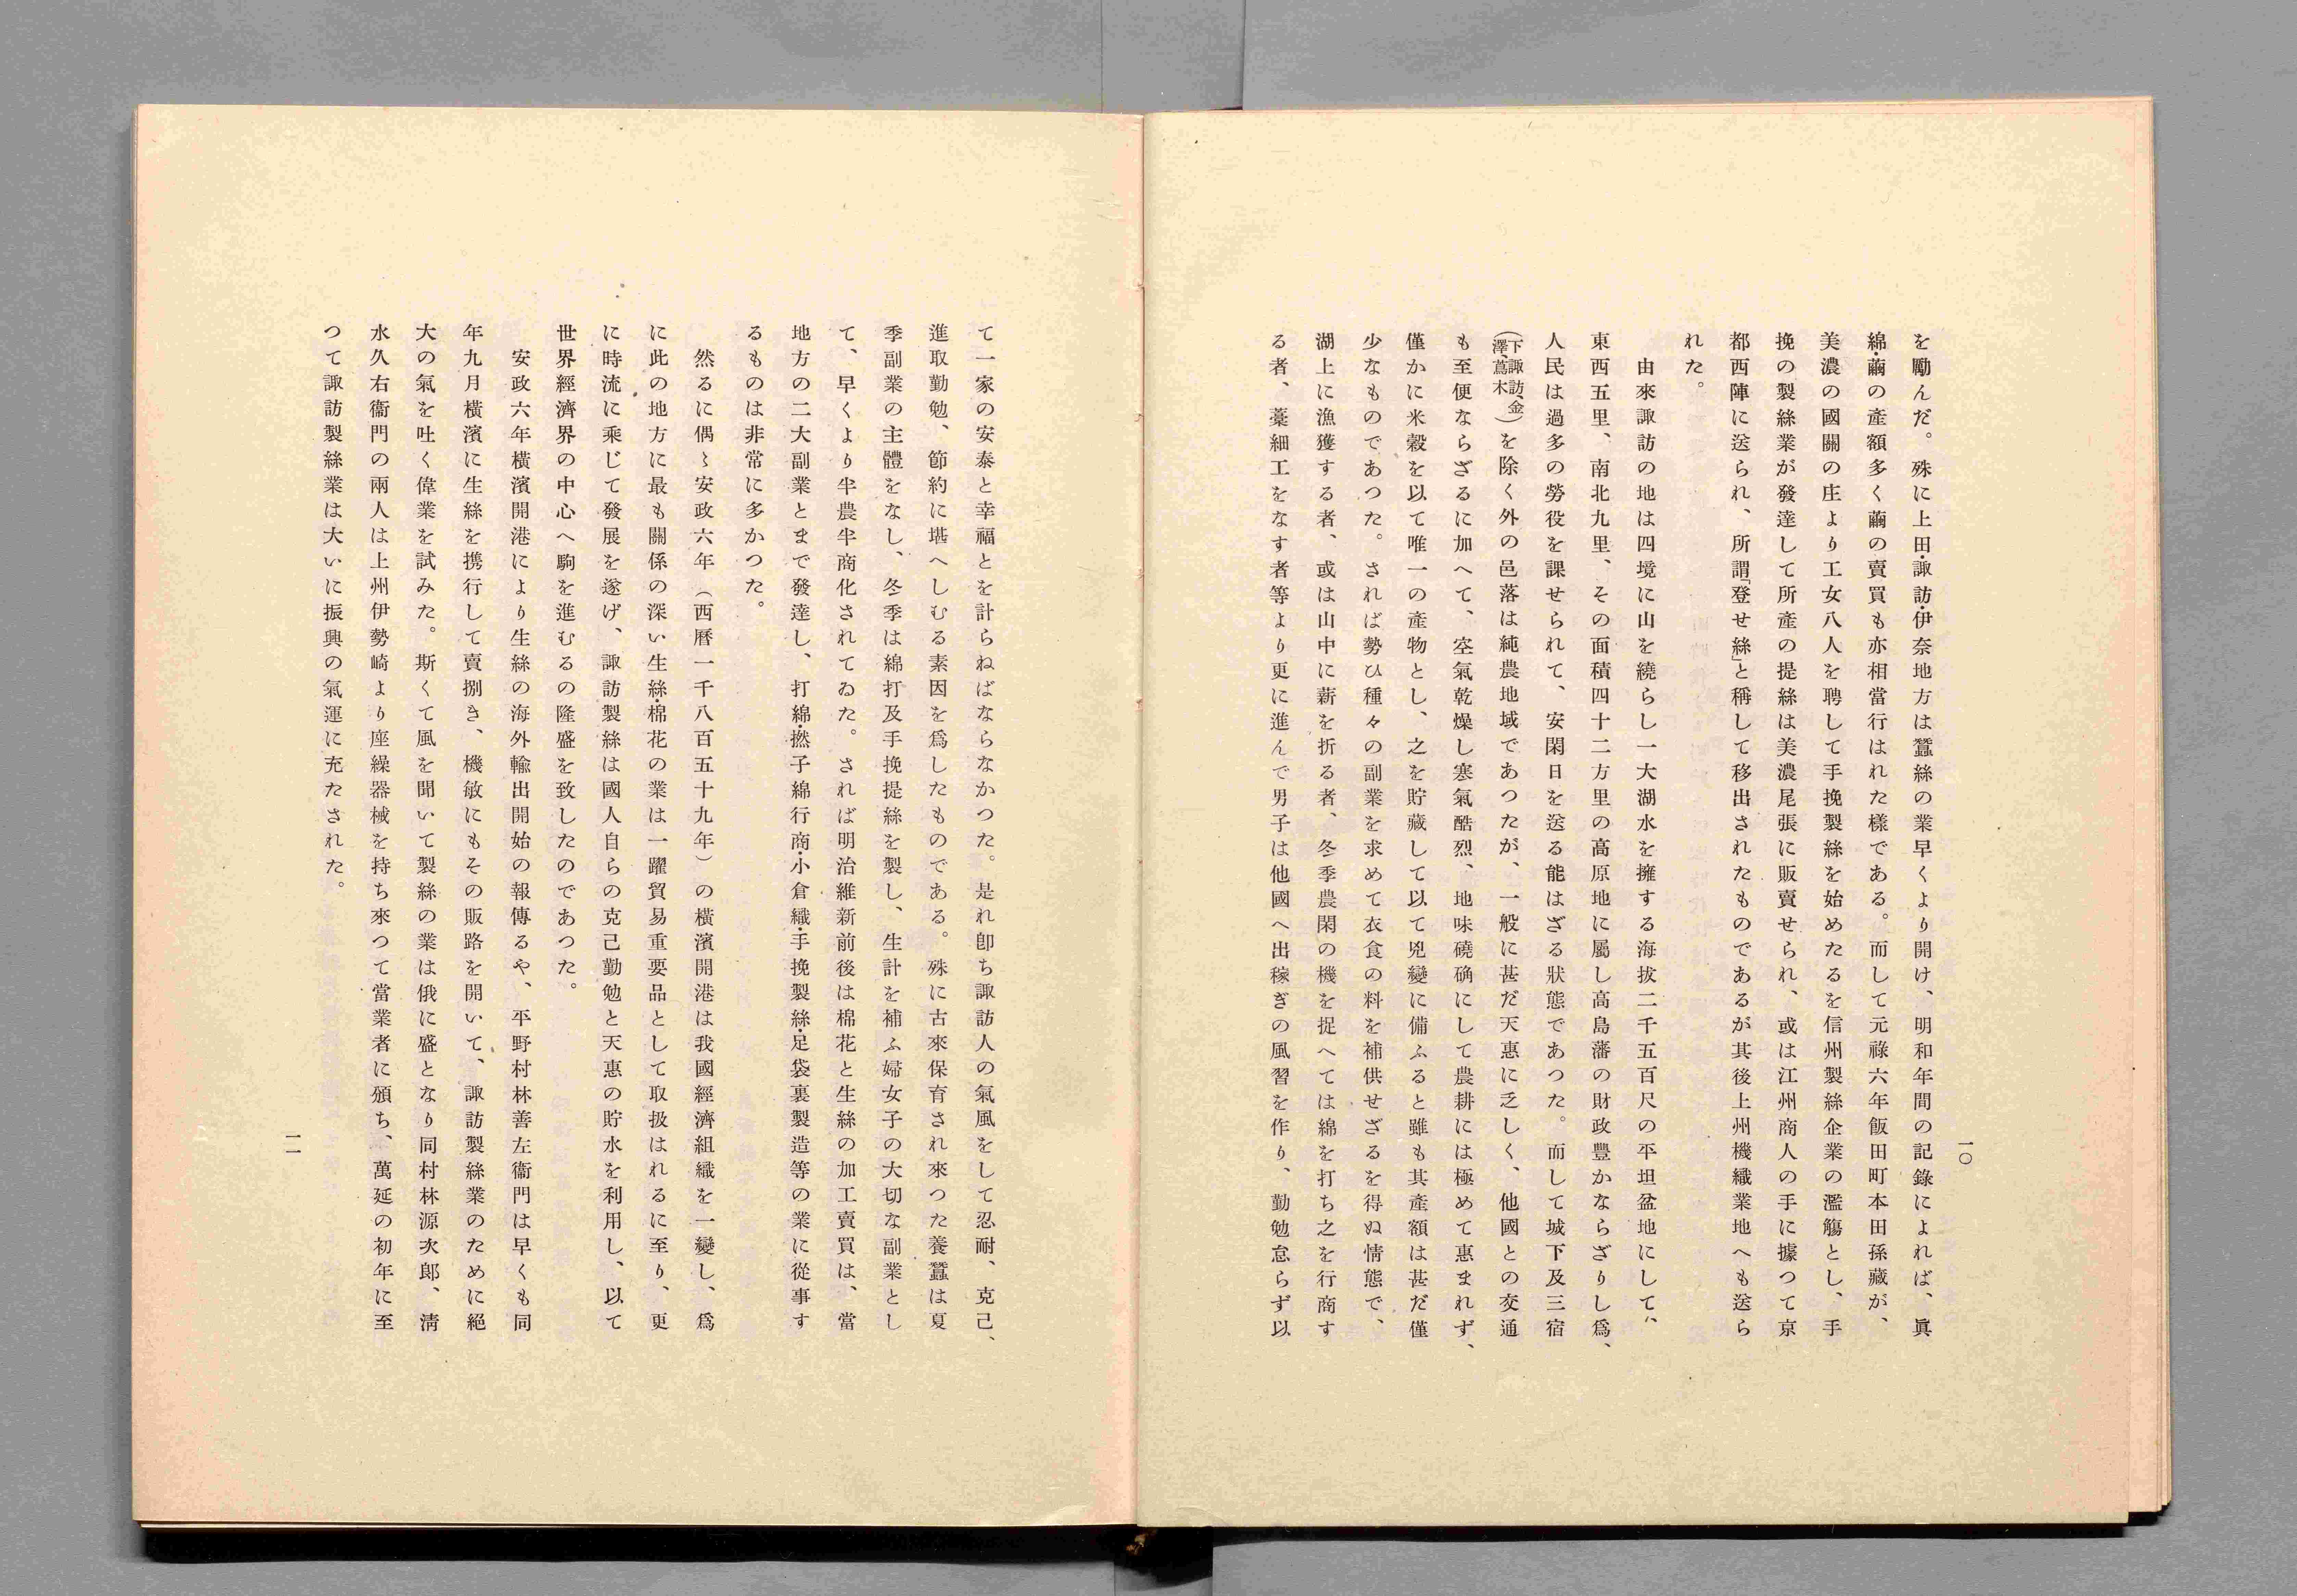 一〇
を勵んだ。殊に上田・諏訪・伊奈地方は蠶絲の業早くより開け、明和年間の記錄によれば、眞
綿・繭の產額多く繭の賣買も亦相當行はれた樣である。而して元祿六年飯田町本田孫藏が、
美濃の國關の庄より工女八人を聘して手挽製絲を始めたるを信州製絲企業の濫觴とし、手
挽の製絲業が發達して所產の提絲は美濃尾張に販賣せられ、或は江州商人の手に據つて京
都西陣に送られ、所謂「登せ絲」と稱して移出されたものであるが其後上州機織業地へも送ら
れた。
由來諏訪の地は四境に山を繞らし一大湖水を擁する海拔二千五百尺の平坦盆地にして、
東西五里、南北九里、その面積四十二方里の高原地に屬し高島藩の財政豐かならざりし爲、
人民は過多の勞役を課せられて、安閑日を送る能はざる狀態であつた。而して城下及三宿
(下諏訪、金澤、蔦木)を除く外の邑落は純農地域であつたが、一般に甚だ天惠に乏しく、他國との交通
も至便ならざるに加へて、空氣乾燥し寒氣酷烈、地味磽确にして農耕には極めて惠まれず、
僅かに米穀を以て唯一の產物とし、之を貯藏して以て兇變に備ふると雖も其產額は甚だ僅
少なものであつた。されば勢ひ種々の副業を求めて衣食の料を補供せざるを得ぬ情態で、
湖上に漁獲する者、或は山中に薪を折る者、冬季農閑の機を捉へては綿を打ち之を行商す
る者、藁細工をなす者等より更に進んで男子は他國へ出稼ぎの風習を作り、勤勉怠らず以
て一家の安泰と幸福とを計らねばならなかつた。是れ卽ち諏訪人の氣風をして忍耐、克己、
進取勤勉、節約に堪へしむる素因を爲したものである。殊に古來保育され來つた養蠶は夏
季副業の主體をなし、冬季は綿打及手挽提絲を製し、生計を補ふ婦女子の大切な副業とし
て、早くより半農半商化されてゐた。されば明治維新前後は棉花と生絲の加工賣買は、當
地方の二大副業とまで發達し、打綿・撚子綿行商・小倉織・手挽製絲・足袋裏製造等の業に從事す
るものは非常に多かつた。
然るに偶〻安政六年(西曆一千八百五十九年)の橫濱開港は我國經濟組織を一變し、爲
に此の地方に最も關係の深い生絲・棉花の業は一躍貿易重要品として取扱はれるに至り、更
に時流に乘じて發展を遂げ、諏訪製絲は國人自らの克己勤勉と天惠の貯水を利用し、以て
世界經濟界の中心へ駒を進むるの隆盛を致したのであつた。
安政六年橫濱開港により生絲の海外輸出開始の報傳るや、平野村林善左衞門は早くも同
年九月橫濱に生絲を携行して賣捌き、機敏にもその販路を開いて、諏訪製絲業のために絕
大の氣を吐く偉業を試みた。斯くて風を聞いて製絲の業は俄に盛となり同村林源次郎、淸
水久右衞門の兩人は上州伊勢崎より座繰器械を持ち來つて當業者に頒ち、萬延の初年に至
つて諏訪製絲業は大いに振興の氣運に充たされた。
一一